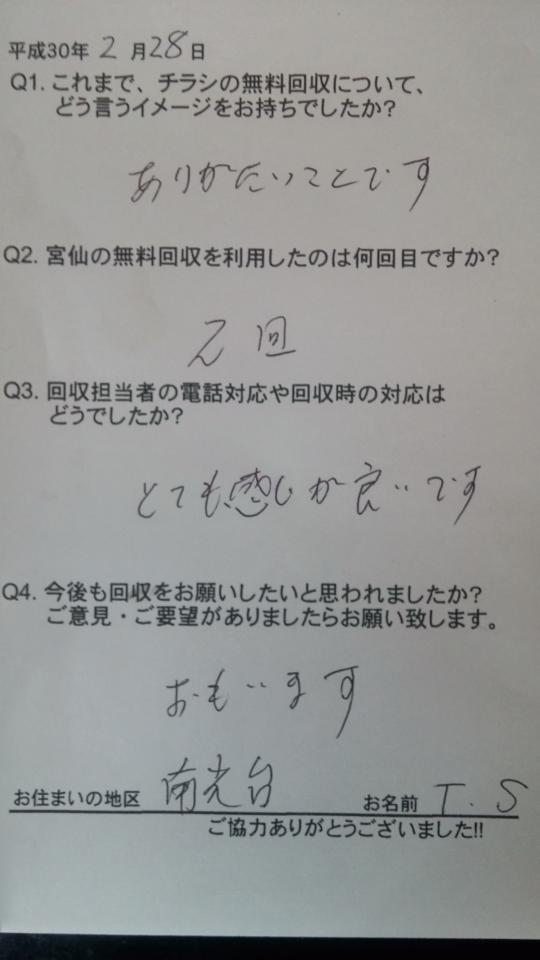 平成30年 2月28日
Q1. これまで、チラシの無料回収について、
どう言うイメージをお持ちでしたか?
ありがたいことです
Q2. 宮仙の無料回収を利用したのは何回目ですか?
2回
Q3. 回収担当者の電話対応や回収時の対応は
どうでしたか?
とても感じが良いです
Q4. 今後も回収をお願いしたいと思われましたか?
ご意見・ご要望がありましたらお願い致します。
おもいます
お住まいの地区 南光台 お名前 T.S
ご協力ありがとうございました!!